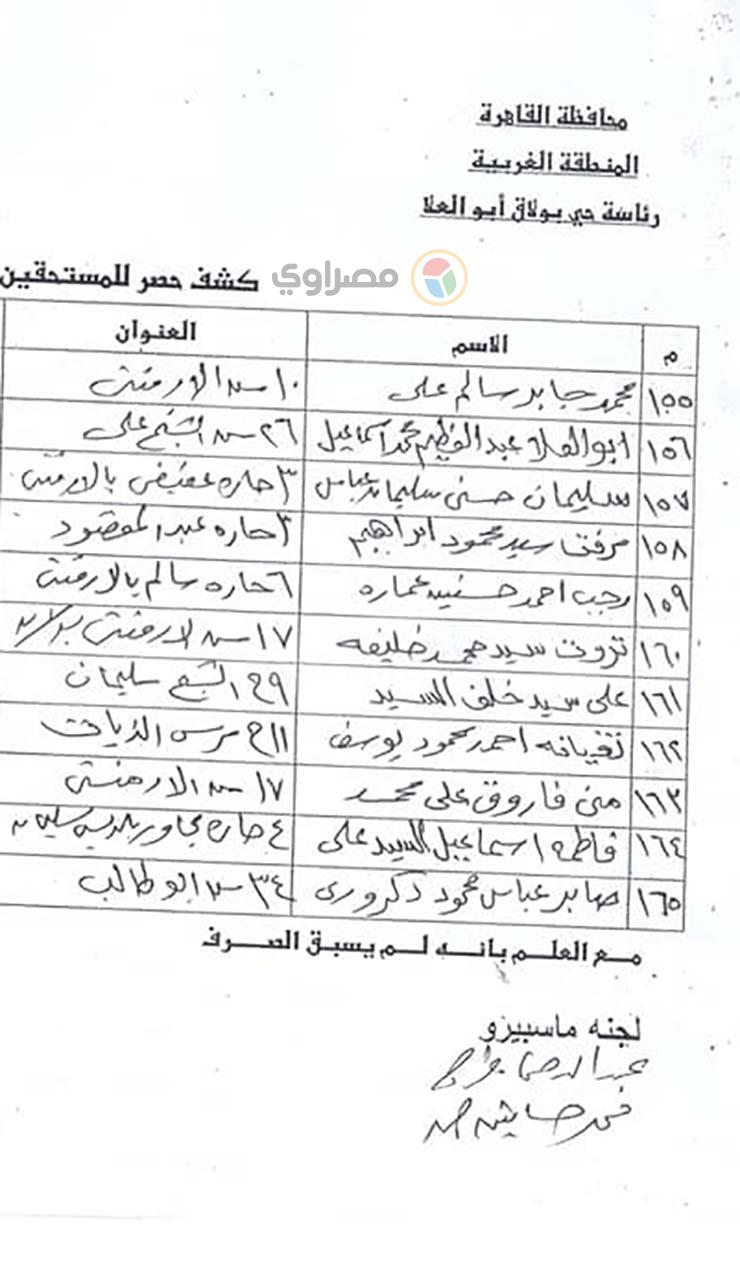 محافظة القاهرة
المنطقة الغربية
رئاسة حي بولاق أبو العلا
مصراوي
كشف حصر للمستحقين
م الاسم العنوان
١٥٥ محمد جابر سالم على ١٠ ش الارمنت
١٥٦ ابو العلا عبد العظيم محمد اسماعيل ٢٦ ش الشيخ على
١٥٧ سليمان حسنى سليمان عباس ٣ حاره عفيفى بالارمنت
١٥٨ مرفت سيد محمود ابراهيم ٣ حاره عبد المقصود
١٥٩ رجب احمد حسنين عماره ٦ حاره سالم بالارمنت
١٦٠ ثروت سيد محمد خليفه ١٧ ش
١٦١ على سيد خلف السيد ٩ ح الشيخ سليمان
١٦٢ احمد محمود يوسف ١١ ح
١٦٣ منى فاروق على محمد ١٧ ش الارمنت
١٦٤ فاطمه اسماعيل السيد على ٤ حاره
١٦٥ صابر عباس محمود دكرورى ٣٤ ش ابو طالب
مع العلم بانه لم يسبق الصرف
لجنه ماسبيرو